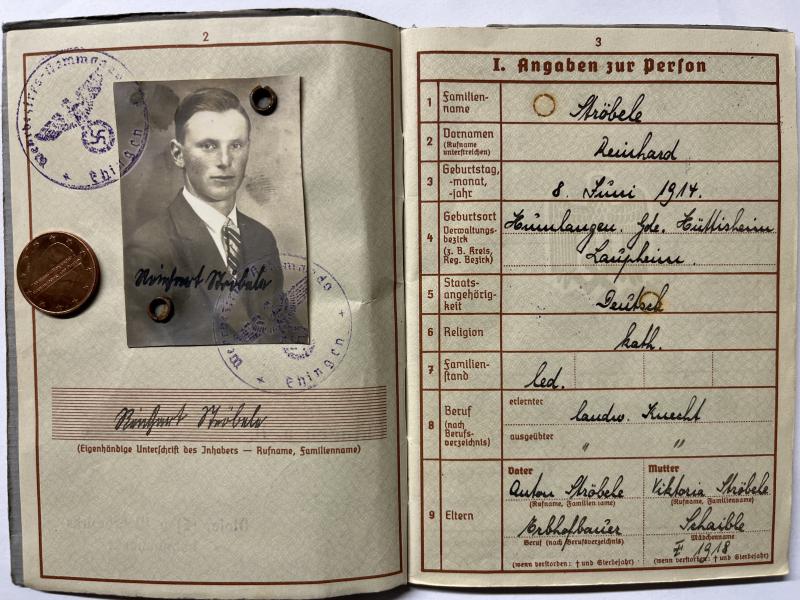 2
Wehrbezirks-Kommando
* Ehingen *
Reinhart Ströbele
Wehrbezirks-Kommando
* Ehingen *
Reinhart Ströbele
(Eigenhändige Unterschrift des Inhabers — Rufname, Familienname)
3
I. Angaben zur Person
1 Familien-
name
Ströbele
2 Vornamen
(Rufname
unterstreichen)
Reinhard
3 Geburtstag,
-monat,
-jahr
8. Juni 1914.
4 Geburtsort
Verwaltungs-
bezirk
(z. B. Kreis,
Reg. Bezirk)
Humlangen. Gde. Hüttisheim
Laupheim.
5 Staats-
angehörig-
keit
Deutsch
6 Religion
kath.
7 Familien-
stand
led.
8 Beruf
(nach
Berufs-
verzeichnis)
erlernter
landw. Knecht
ausgeübter
" "
9 Eltern
Vater Mutter
Anton Ströbele Viktoria Ströbele
(Rufname, Familienname) (Rufname, Familienname)
Erbhofbauer Schaible
Beruf (nach Berufsverzeichnis) Mädchenname
1918
(wenn verstorben: † und Sterbejahr) (wenn verstorben: † und Sterbejahr)